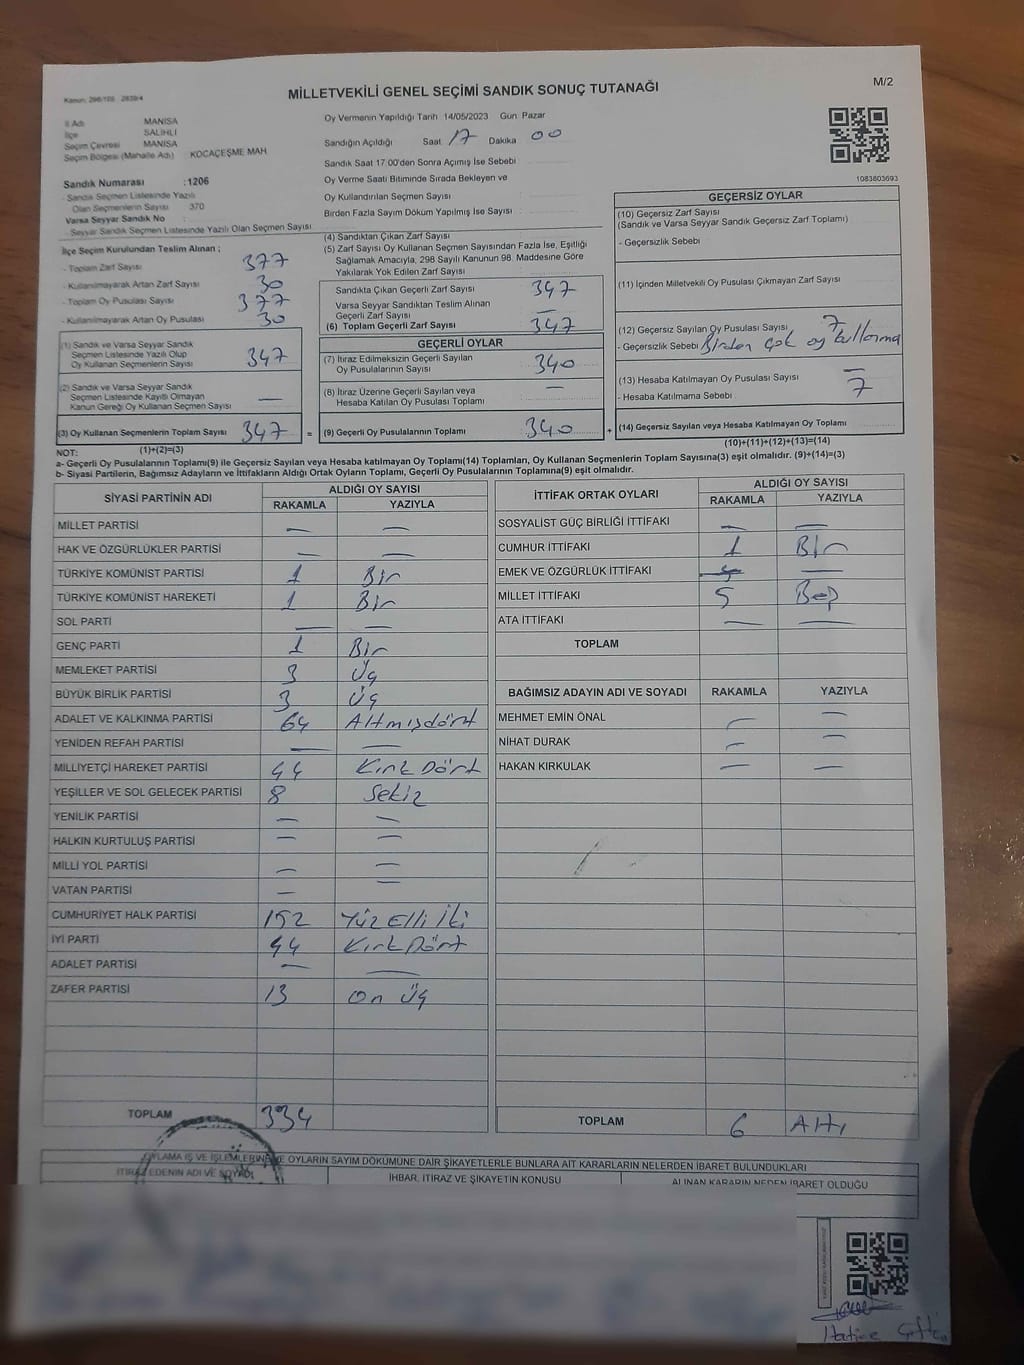 Kanun: 298/105 2839/4
MİLLETVEKİLİ GENEL SEÇİMİ SANDIK SONUÇ TUTANAĞI
M/2
İl Adı MANİSA
İlçe SALİHLİ
Seçim Çevresi MANİSA
Seçim Bölgesi (Mahalle Adı) KOCAÇEŞME MAH
Sandık Numarası :1206
- Sandık Seçmen Listesinde Yazılı
Olan Seçmenlerin Sayısı 370
Varsa Seyyar Sandık No :
- Seyyar Sandık Seçmen Listesinde Yazılı Olan Seçmen Sayısı
Oy Vermenin Yapıldığı Tarih 14/05/2023 Gün: Pazar
Sandığın Açıldığı Saat 17 Dakika 00
Sandık Saat 17:00'den Sonra Açımış İse Sebebi
Oy Verme Saati Bitiminde Sırada Bekleyen ve
Oy Kullandırılan Seçmen Sayısı
Birden Fazla Sayım Döküm Yapılmış İse Sayısı
1083803693
İlçe Seçim Kurulundan Teslim Alınan ;
- Toplam Zarf Sayısı 377
- Kullanılmayarak Artan Zarf Sayısı 30
- Toplam Oy Pusulası Sayısı 377
- Kullanılmayarak Artan Oy Pusulası 30
(1) Sandık ve Varsa Seyyar Sandık
Seçmen Listesinde Yazılı Olup
Oy Kullanan Seçmenlerin Sayısı 347
(2) Sandık ve Varsa Seyyar Sandık
Seçmen Listesinde Kayıtlı Olmayan
Kanun Gereği Oy Kullanan Seçmen Sayısı —
(3) Oy Kullanan Seçmenlerin Toplam Sayısı 347 =
(4) Sandıktan Çıkan Zarf Sayısı
(5) Zarf Sayısı Oy Kullanan Seçmen Sayısından Fazla İse, Eşitliği
Sağlamak Amacıyla, 298 Sayılı Kanunun 98. Maddesine Göre
Yakılarak Yok Edilen Zarf Sayısı
Sandıkta Çıkan Geçerli Zarf Sayısı 347
Varsa Seyyar Sandıktan Teslim Alınan
Geçerli Zarf Sayısı —
(6) Toplam Geçerli Zarf Sayısı 347
GEÇERLİ OYLAR
(7) İtiraz Edilmeksizin Geçerli Sayılan
Oy Pusulalarının Sayısı 340
(8) İtiraz Üzerine Geçerli Sayılan veya
Hesaba Katılan Oy Pusulası Toplamı —
(9) Geçerli Oy Pusulalarının Toplamı 340 +
GEÇERSİZ OYLAR
(10) Geçersiz Zarf Sayısı
(Sandık ve Varsa Seyyar Sandık Geçersiz Zarf Toplamı)
- Geçersizlik Sebebi
(11) İçinden Milletvekili Oy Pusulası Çıkmayan Zarf Sayısı
(12) Geçersiz Sayılan Oy Pusulası Sayısı 7
- Geçersizlik Sebebi Birden çok oy kullanma
(13) Hesaba Katılmayan Oy Pusulası Sayısı —
- Hesaba Katılmama Sebebi 7
(14) Geçersiz Sayılan veya Hesaba Katılmayan Oy Toplamı
NOT: (1)+(2)=(3) (10)+(11)+(12)+(13)=(14)
a- Geçerli Oy Pusulalarının Toplamı(9) ile Geçersiz Sayılan veya Hesaba katılmayan Oy Toplamı(14) Toplamları, Oy Kullanan Seçmenlerin Toplam Sayısına(3) eşit olmalıdır. (9)+(14)=(3)
b- Siyasi Partilerin, Bağımsız Adayların ve İttifakların Aldığı Ortak Oyların Toplamı, Geçerli Oy Pusulalarının Toplamına(9) eşit olmalıdır.
SİYASİ PARTİNİN ADI ALDIĞI OY SAYISI
RAKAMLA YAZIYLA
MİLLET PARTİSİ — —
HAK VE ÖZGÜRLÜKLER PARTİSİ — —
TÜRKİYE KOMÜNİST PARTİSİ 1 Bir
TÜRKİYE KOMÜNİST HAREKETİ 1 Bir
SOL PARTİ — —
GENÇ PARTİ 1 Bir
MEMLEKET PARTİSİ 3 Üç
BÜYÜK BİRLİK PARTİSİ 3 Üç
ADALET VE KALKINMA PARTİSİ 64 Altmışdört
YENİDEN REFAH PARTİSİ — —
MİLLİYETÇİ HAREKET PARTİSİ 44 Kırk Dört
YEŞİLLER VE SOL GELECEK PARTİSİ 8 Sekiz
YENİLİK PARTİSİ — —
HALKIN KURTULUŞ PARTİSİ — —
MİLLİ YOL PARTİSİ — —
VATAN PARTİSİ — —
CUMHURİYET HALK PARTİSİ 152 Yüz Elli İki
İYİ PARTİ 44 Kırk Dört
ADALET PARTİSİ — —
ZAFER PARTİSİ 13 On Üç
TOPLAM 334
İTTİFAK ORTAK OYLARI ALDIĞI OY SAYISI
RAKAMLA YAZIYLA
SOSYALİST GÜÇ BİRLİĞİ İTTİFAKI — —
CUMHUR İTTİFAKI 1 Bir
EMEK VE ÖZGÜRLÜK İTTİFAKI —
MİLLET İTTİFAKI 5 Beş
ATA İTTİFAKI — —
TOPLAM
BAĞIMSIZ ADAYIN ADI VE SOYADI RAKAMLA YAZIYLA
MEHMET EMİN ÖNAL — —
NİHAT DURAK — —
HAKAN KIRKULAK — —
TOPLAM 6 Altı
OYLAMA İŞ VE İŞLEMLERİNE VE OYLARIN SAYIM DÖKÜMÜNE DAİR ŞİKAYETLERLE BUNLARA AİT KARARLARIN NELERDEN İBARET BULUNDUKLARI
İTİRAZ EDENİN ADI VE SOYADI İHBAR, İTİRAZ VE ŞİKAYETİN KONUSU ALINAN KARARIN NEDEN İBARET OLDUĞU
Hatice